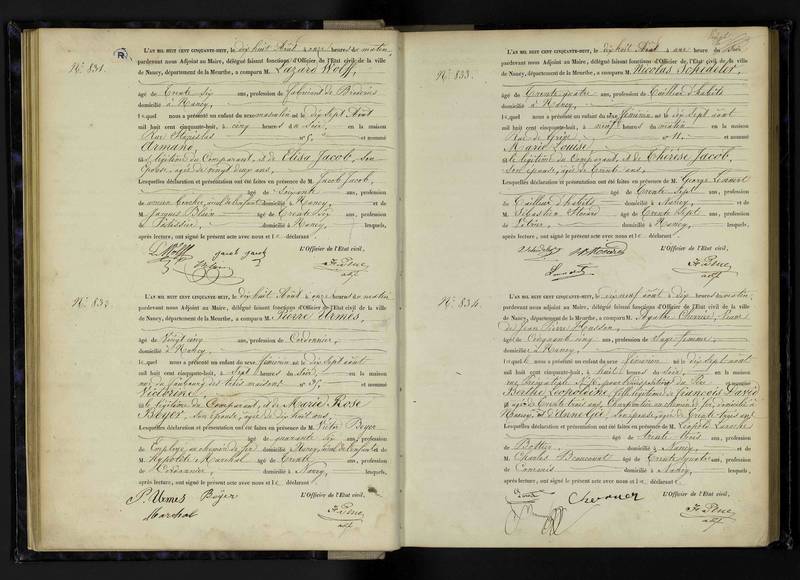 N° 831.
L'AN MIL HUIT CENT CINQUANTE-HUIT, le dix huit Août à onze heures du matin,
pardevant nous Adjoint au Maire, délégué faisant fonctions d'Officier de l'État civil de la ville
de Nancy, département de la Meurthe, a comparu M. Lazard Wolff,
âgé de trente six ans, profession de fabricant de Broderies
domicilié à Nancy,
lequel nous a présenté un enfant du sexe masculin né le dix sept Août
mil huit cent cinquante-huit, à cinq heures du soir, en la maison
Rue Stanislas n° 5, et nommé
Armand,
fils légitime du Comparant, et de Elisa Jacob, son
épouse, âgée de vingt deux ans,
Lesquelles déclaration et présentation ont été faites en présence de M. Jacob Jacob,
âgé de Soixante ans, profession
de ayeul de l'enfant domicilié à Nancy, et de
M. Jacques Blum âgé de trente six ans, profession
de domicilié à Nancy, lesquels,
après lecture, ont signé le présent acte avec nous et le déclarant
L'Officier de l'Etat civil,
L Wolff jacob jacob
J. Blum
adj
N° 832.
L'AN MIL HUIT CENT CINQUANTE-HUIT, le dix huit Août à onze heures du matin,
pardevant nous Adjoint au Maire, délégué faisant fonctions d'Officier de l'État civil de la ville
de Nancy, département de la Meurthe, a comparu M. Pierre Urmes,
âgé de Vingt cinq ans, profession de Cordonnier,
domicilié à Nancy,
lequel nous a présenté un enfant du sexe féminin né le dix sept août
mil huit cent cinquante-huit, à sept heures du soir, en la maison
rue du faubourg des trois maisons n° et nommé
Victorine,
fille légitime du Comparant, et de Marie Rose
Boyer, son épouse, âgée de dix huit ans,
Lesquelles déclaration et présentation ont été faites en présence de M. Victor Boyer
âgé de quarante six ans, profession
de Employé au chemin de fer domicilié à Nancy, ayeul de l'enfant et de
M. Hypolite Marchal âgé de trente ans, profession
de Cordonnier, domicilié à Nancy, lesquels,
après lecture, ont signé le présent acte avec nous et le déclarant
P. Urmes Boyer L'Officier de l'Etat civil,
Marchal
adj
N° 833.
L'AN MIL HUIT CENT CINQUANTE-HUIT, le dix huit Août à une heure du soir,
pardevant nous Adjoint au Maire, délégué faisant fonctions d'Officier de l'État civil de la ville
de Nancy, département de la Meurthe, a comparu M. Nicolas Schidelot,
âgé de trente quatre ans, profession de tailleur d'habits
domicilié à Nancy,
lequel nous a présenté un enfant du sexe féminin né le dix sept août
mil huit cent cinquante-huit, à neuf heures du matin en la maison
Rue de Grève n° 11, et nommé
Marie Louise,
fille légitime du Comparant, et de Thérèse Jacob,
son épouse, âgée de trente ans,
Lesquelles déclaration et présentation ont été faites en présence de M. George
âgé de trente sept ans, profession
de Tailleur d'habits domicilié à Nancy, et de
M. Sébastien âgé de trente sept ans, profession
de domicilié à Nancy, lesquels,
après lecture, ont signé le présent acte avec nous et le déclarant
L'Officier de l'Etat civil,
adj
N° 834.
L'AN MIL HUIT CENT CINQUANTE-HUIT, le dix neuf août à dix heures du matin,
pardevant nous Adjoint au Maire, délégué faisant fonctions d'Officier de l'État civil de la ville
de Nancy, département de la Meurthe, a comparu M. Agathe Veuve
de Jean Pierre Husson,
âgée de Cinquante cinq ans, profession de Sage femme,
domiciliée à Nancy,
lequel nous a présenté un enfant du sexe féminin né le dix sept août
mil huit cent cinquante-huit, à huit heures du soir, en la maison
et nommé
Berthe Léopoldine, fille légitime de François David
âgé de trente trois ans, Charpentier au chemin de fer, domicilié à
Nancy, et d'Anne Gié, son épouse, âgée de trente trois ans,
Lesquelles déclaration et présentation ont été faites en présence de M. Léopold Laroche
âgé de trente trois ans, profession
de Bottier domicilié à Nancy, et de
M. Charles Beaucourt âgé de trente quatre ans, profession
de Commis domicilié à Nancy, lesquels,
après lecture, ont signé le présent acte avec nous et le déclarant
L'Officier de l'Etat civil,
adj